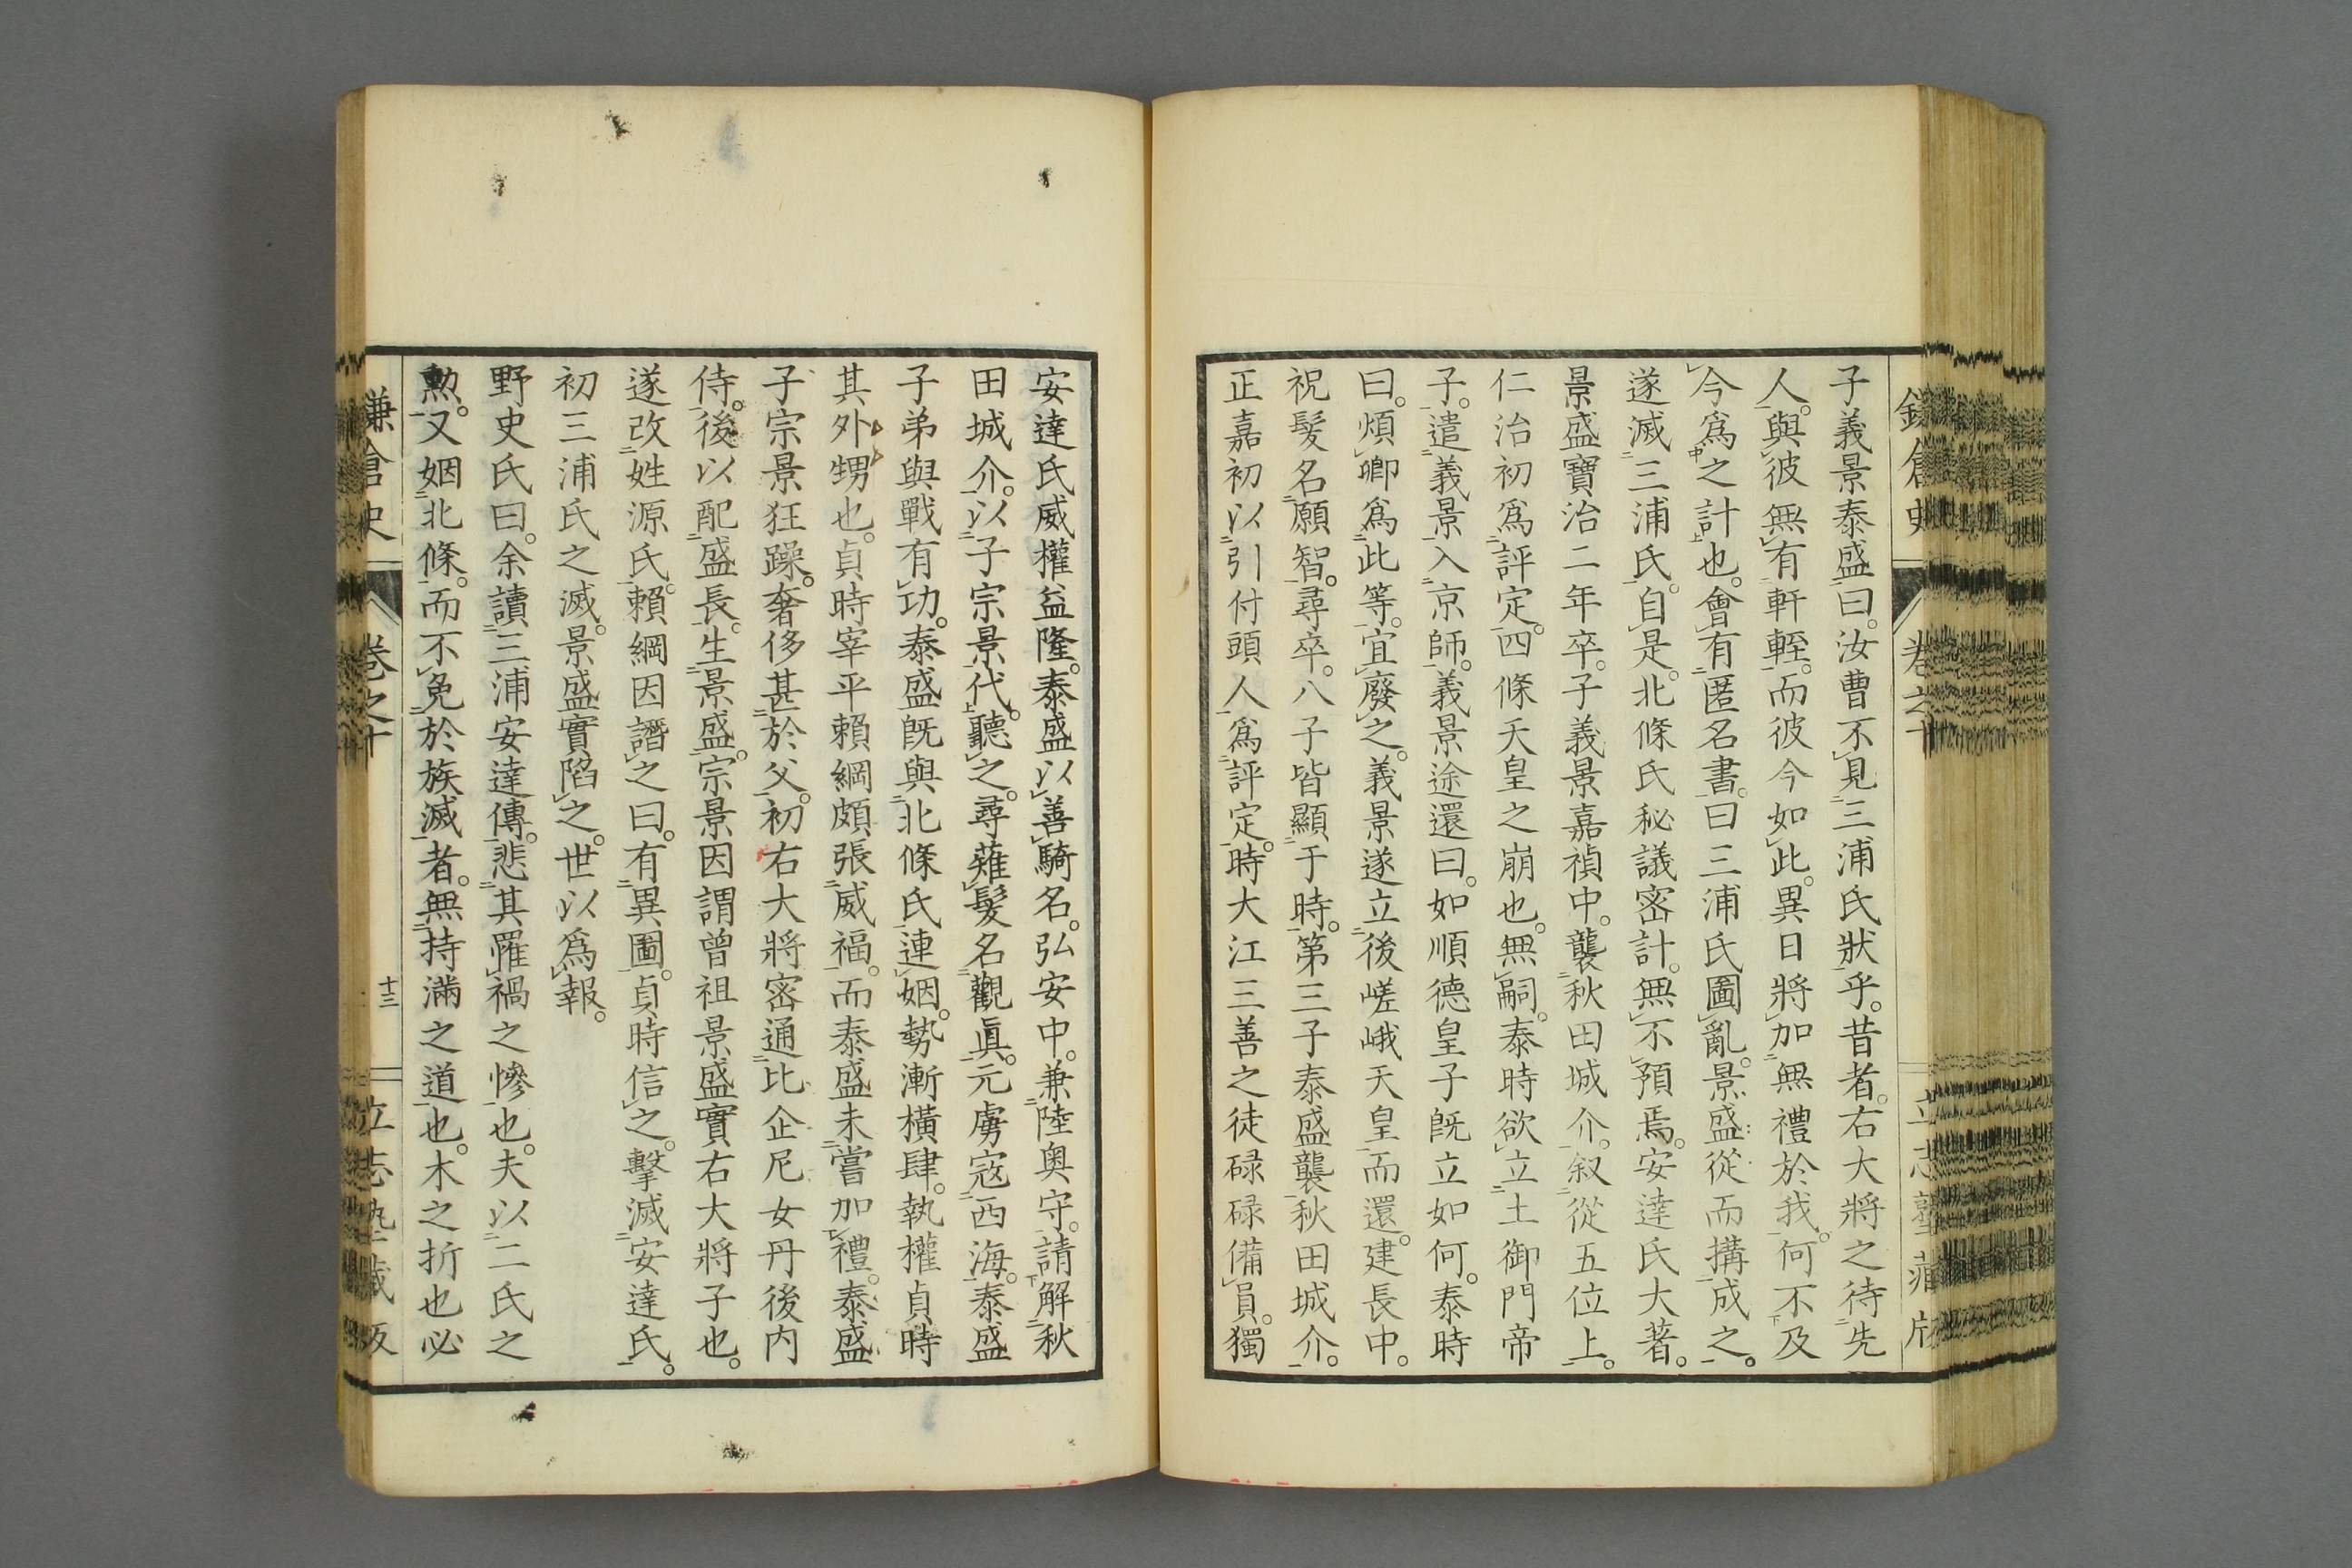 子義景泰盛曰。汝曹不見三浦氏狀乎。昔者。右大將之待先
人。與彼無有軒輊。而彼今如此。異日將加無禮於我。何不及
今爲之計也。會有匿名書。曰三浦氏圖亂。景盛從而搆成之。
遂滅三浦氏。自是。北條氏秘議密計。無不預焉。安達氏大著。
景盛寶治二年卒。子義景嘉禎中。襲秋田城介。叙從五位上。
仁治初爲評定。四條天皇之崩也。無嗣。泰時欲立土御門帝
子。遣義景入京師。義景途還曰。如順德皇子旣立如何。泰時
曰。煩卿爲此等。宜廢之。義景遂立後嵯峨天皇而還。建長中。
祝髮名願智。尋卒。八子皆顯于時。第三子泰盛襲秋田城介。
正嘉初以引付頭人爲評定。時大江三善之徒碌碌備員。獨
安達氏威權益隆。泰盛以善騎名。弘安中。兼陸奥守。請解秋
田城介。以子宗景代。聽之。尋薙髮名觀眞。元虜寇西海。泰盛
子弟與戰有功。泰盛旣與北條氏連姻。勢漸橫肆。執權貞時
其外甥也。貞時宰平賴綱頗張威福。而泰盛未嘗加禮。泰盛
子宗景狂躁。奢侈甚於父。初右大將密通比企尼女丹後内
侍。後以配盛長。生景盛。宗景因謂曾祖景盛實右大將子也。
遂改姓源氏。賴綱因譖之曰。有異圖。貞時信之。擊滅安達氏。
初三浦氏之滅。景盛實陷之。世以爲報。
野史氏曰。余讀三浦安達傳。悲其罹禍之慘也。夫以二氏之
勲。又姻北條。而不免於族滅者。無持滿之道也。木之折也必
鎌倉史 卷之十 十三 立志塾藏版